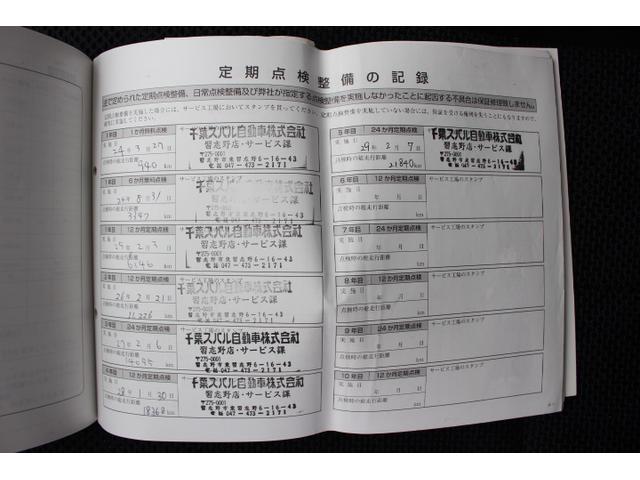 定期点検整備の記録
法で定められた定期点検整備、日常点検整備及び弊社が指定する点検整備を実施しなかったことに起因する不具合は保証修理致しません。
1年目 1か月無料点検
実施日 24年3月27日
点検時の総走行距離
940 km
千葉スバル自動車株式会社
習志野店・サービス課
〒275-0001
習志野市東習志野6-16-43
電話 047-473-2171
1年目 6か月無料点検
実施日 24年8月31日
点検時の総走行距離
3197 km
千葉スバル自動車株式会社
習志野店・サービス課
〒275-0001
習志野市東習志野6-16-43
電話 047-473-2171
12か月定期点検
実施日 25年2月3日
点検時の総走行距離
6146 km
千葉スバル自動車株式会社
習志野店・サービス課
〒275-0001
習志野市東習志野6-16-43
電話 047-473-2171
12か月定期点検
26年2月21日
点検時の総走行距離
11226 km
千葉スバル自動車株式会社
習志野店・サービス課
〒275-0001
習志野市東習志野6-16-43
24か月定期点検
27年2月6日
点検時の総走行距離
14695 km
千葉スバル自動車株式会社
習志野店・サービス課
〒275-0001
習志野市東習志野6-16-43
電話 047-473-2171
12か月定期点検
28年1月30日
点検時の総走行距離
18368 km
千葉スバル自動車株式会社
習志野店・サービス課
〒275-0001
習志野市東習志野6-16-43
電話 047-473-2171
5年目 24か月定期点検
実施日 29年2月7日
点検時の総走行距離
21840 km
千葉スバル自動車株式会社
習志野店・サービス課
〒275-0001
習志野市東習志野6-16-43
電話 047-473-2171
6年目 12か月定期点検
サービス工場のスタンプ
実施日 年 月 日
点検時の総走行距離
km
7年目 24か月定期点検
サービス工場のスタンプ
実施日 年 月 日
点検時の総走行距離
km
8年目 12か月定期点検
サービス工場のスタンプ
実施日 年 月 日
点検時の総走行距離
km
9年目 24か月定期点検
サービス工場のスタンプ
実施日 年 月 日
点検時の総走行距離
km
10年目 12か月定期点検
サービス工場のスタンプ
実施日 年 月 日
点検時の総走行距離
km